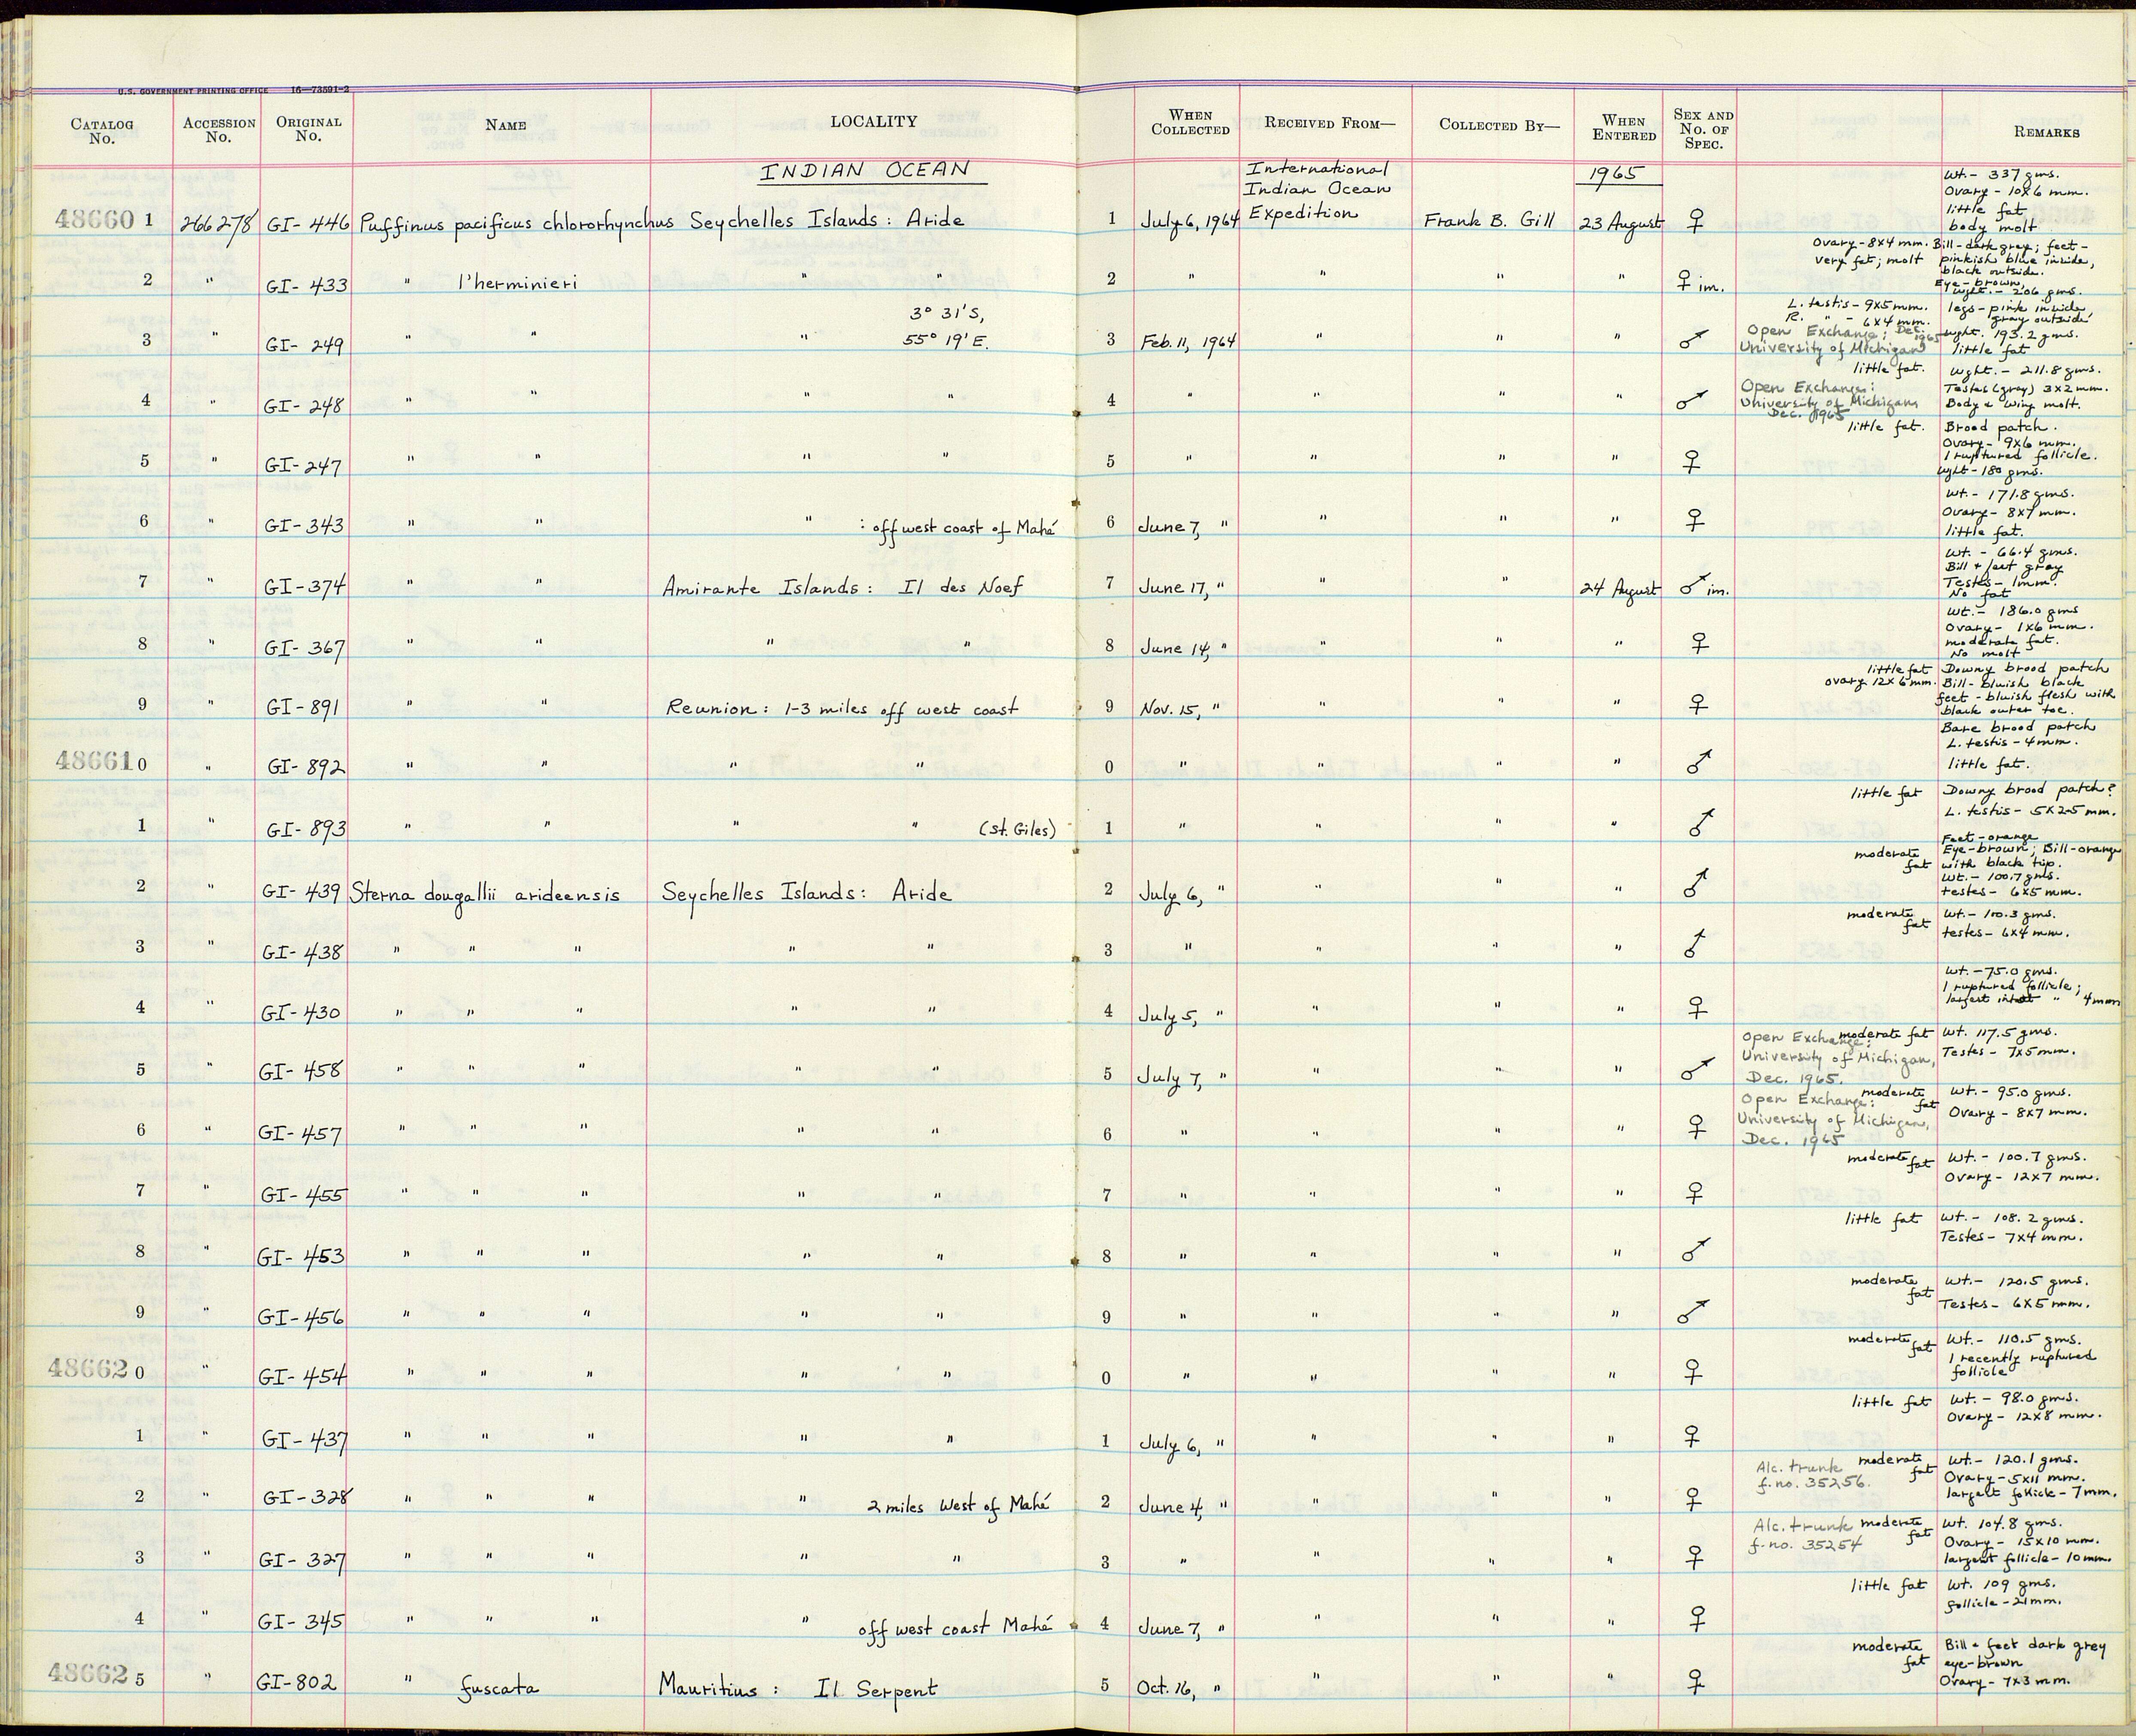 U.S. GOVERNMENT PRINTING OFFICE 16—73591-2
CATALOG No. ACCESSION No. ORIGINAL No. NAME LOCALITY WHEN COLLECTED RECEIVED FROM— COLLECTED BY— WHEN ENTERED SEX AND No. OF SPEC. REMARKS
INDIAN OCEAN International Indian Ocean Expedition 1965
48660 1 266278 GI-446 Puffinus pacificus chlororhynchus Seychelles Islands: Aride 1 July 6, 1964 Frank B. Gill 23 August ♀ Wt.- 337 gms. Ovary - 10x6 mm. little fat body molt
2 " GI-433 " l'herminieri " " 2 " " " " ♀ im. Ovary-8x4 mm. very fat; molt Bill-dark gray; feet-pinkish blue inside, black outside. Eye-brown, wght.- 206 gms.
3 " GI-249 " " " 3° 31'S, 55° 19'E. 3 Feb. 11, 1964 " " " ♂ L. testis-9x5mm. R. " - 6x4 mm. Open Exchange: Dec. 1965 University of Michigan legs-pink inside gray outside wght. 193.2 gms. little fat
4 " GI-248 " " " " 4 " " " " ♂ little fat. Open Exchange: University of Michigan, Dec. 1965 wght.- 211.8 gms. Testes (gray) 3x2mm. Body & wing molt.
5 " GI-247 " " " " 5 " " " " ♀ little fat. Brood patch. Ovary- 9x6 mm. 1 ruptured follicle. wght-180 gms.
6 " GI-343 " " " : off west coast of Mahé 6 June 7, " " " " ♀ Wt.- 171.8 gms. Ovary- 8x7 mm. little fat.
7 " GI-374 " " Amirante Islands: Il des Noef 7 June 17, " " " 24 August ♂ im. Wt. - 66.4 gms. Bill + feet gray Testes- 1mm. No fat
8 " GI-367 " " " " 8 June 14, " " " " ♀ Wt.- 186.0 gms Ovary- 1x6 mm. moderate fat. No molt
9 " GI-891 " " Reunion: 1-3 miles off west coast 9 Nov. 15, " " " " ♀ little fat ovary 12x6mm. Downy brood patch Bill-bluish black feet-bluish flesh with black outer toe.
48661 0 " GI-892 " " " " 0 " " " " ♂ Bare brood patch L. testis-4mm. little fat.
1 " GI-893 " " " " (St. Giles) 1 " " " " ♂ little fat Downy brood patch? L. testis- 5x2.5 mm.
2 " GI-439 Sterna dougallii arideensis Seychelles Islands: Aride 2 July 6, " " " " ♂ moderate fat Feet-orange Eye-brown; Bill-orange with black tip. Wt.- 100.7 gms. testes- 6x5 mm.
3 " GI-438 " " " " " 3 " " " " ♂ moderate fat Wt.- 100.3 gms. testes- 6x4 mm.
4 " GI-430 " " " " " 4 July 5, " " " " ♀ Wt.-75.0 gms. 1 ruptured follicle; largest intact " 4mm
5 " GI-458 " " " " " 5 July 7, " " " " ♂ Open Exchange: University of Michigan, Dec. 1965. moderate fat Wt. 117.5 gms. Testes- 7x5mm.
6 " GI-457 " " " " " 6 " " " " ♀ Open Exchange: University of Michigan, Dec. 1965 moderate fat Wt.- 95.0 gms. Ovary-8x7 mm.
7 " GI-455 " " " " " 7 " " " " ♀ moderate fat Wt.- 100.7 gms. Ovary- 12x7 mm.
8 " GI-453 " " " " " 8 " " " " ♂ little fat Wt.- 108.2 gms. Testes- 7x4 mm.
9 " GI-456 " " " " " 9 " " " " ♂ moderate fat Wt.- 120.5 gms. Testes- 6x5 mm.
48662 0 " GI-454 " " " " " 0 " " " " ♀ moderate fat Wt.- 110.5 gms. 1 recently ruptured follicle
1 " GI-437 " " " " " 1 July 6, " " " " ♀ little fat Wt- 98.0 gms. Ovary- 12x8 mm.
2 " GI-328 " " " " 2 miles West of Mahé 2 June 4, " " " " ♀ Alc. trunk f.no. 35256. moderate fat Wt.- 120.1 gms. Ovary-5x11 mm. largest follicle-7mm.
3 " GI-327 " " " " " 3 " " " " ♀ Alc. trunk f.no. 35254 moderate fat Wt. 104.8 gms. Ovary- 15x10 mm. largest follicle-10mm.
4 " GI-345 " " " " off west coast Mahé 4 June 7, " " " " ♀ little fat Wt. 109 gms. follicle-21mm.
48662 5 " GI-802 " fuscata Mauritius: Il Serpent 5 Oct. 16, " " " " ♀ moderate fat Bill & feet dark grey eye-brown Ovary-7x3mm.